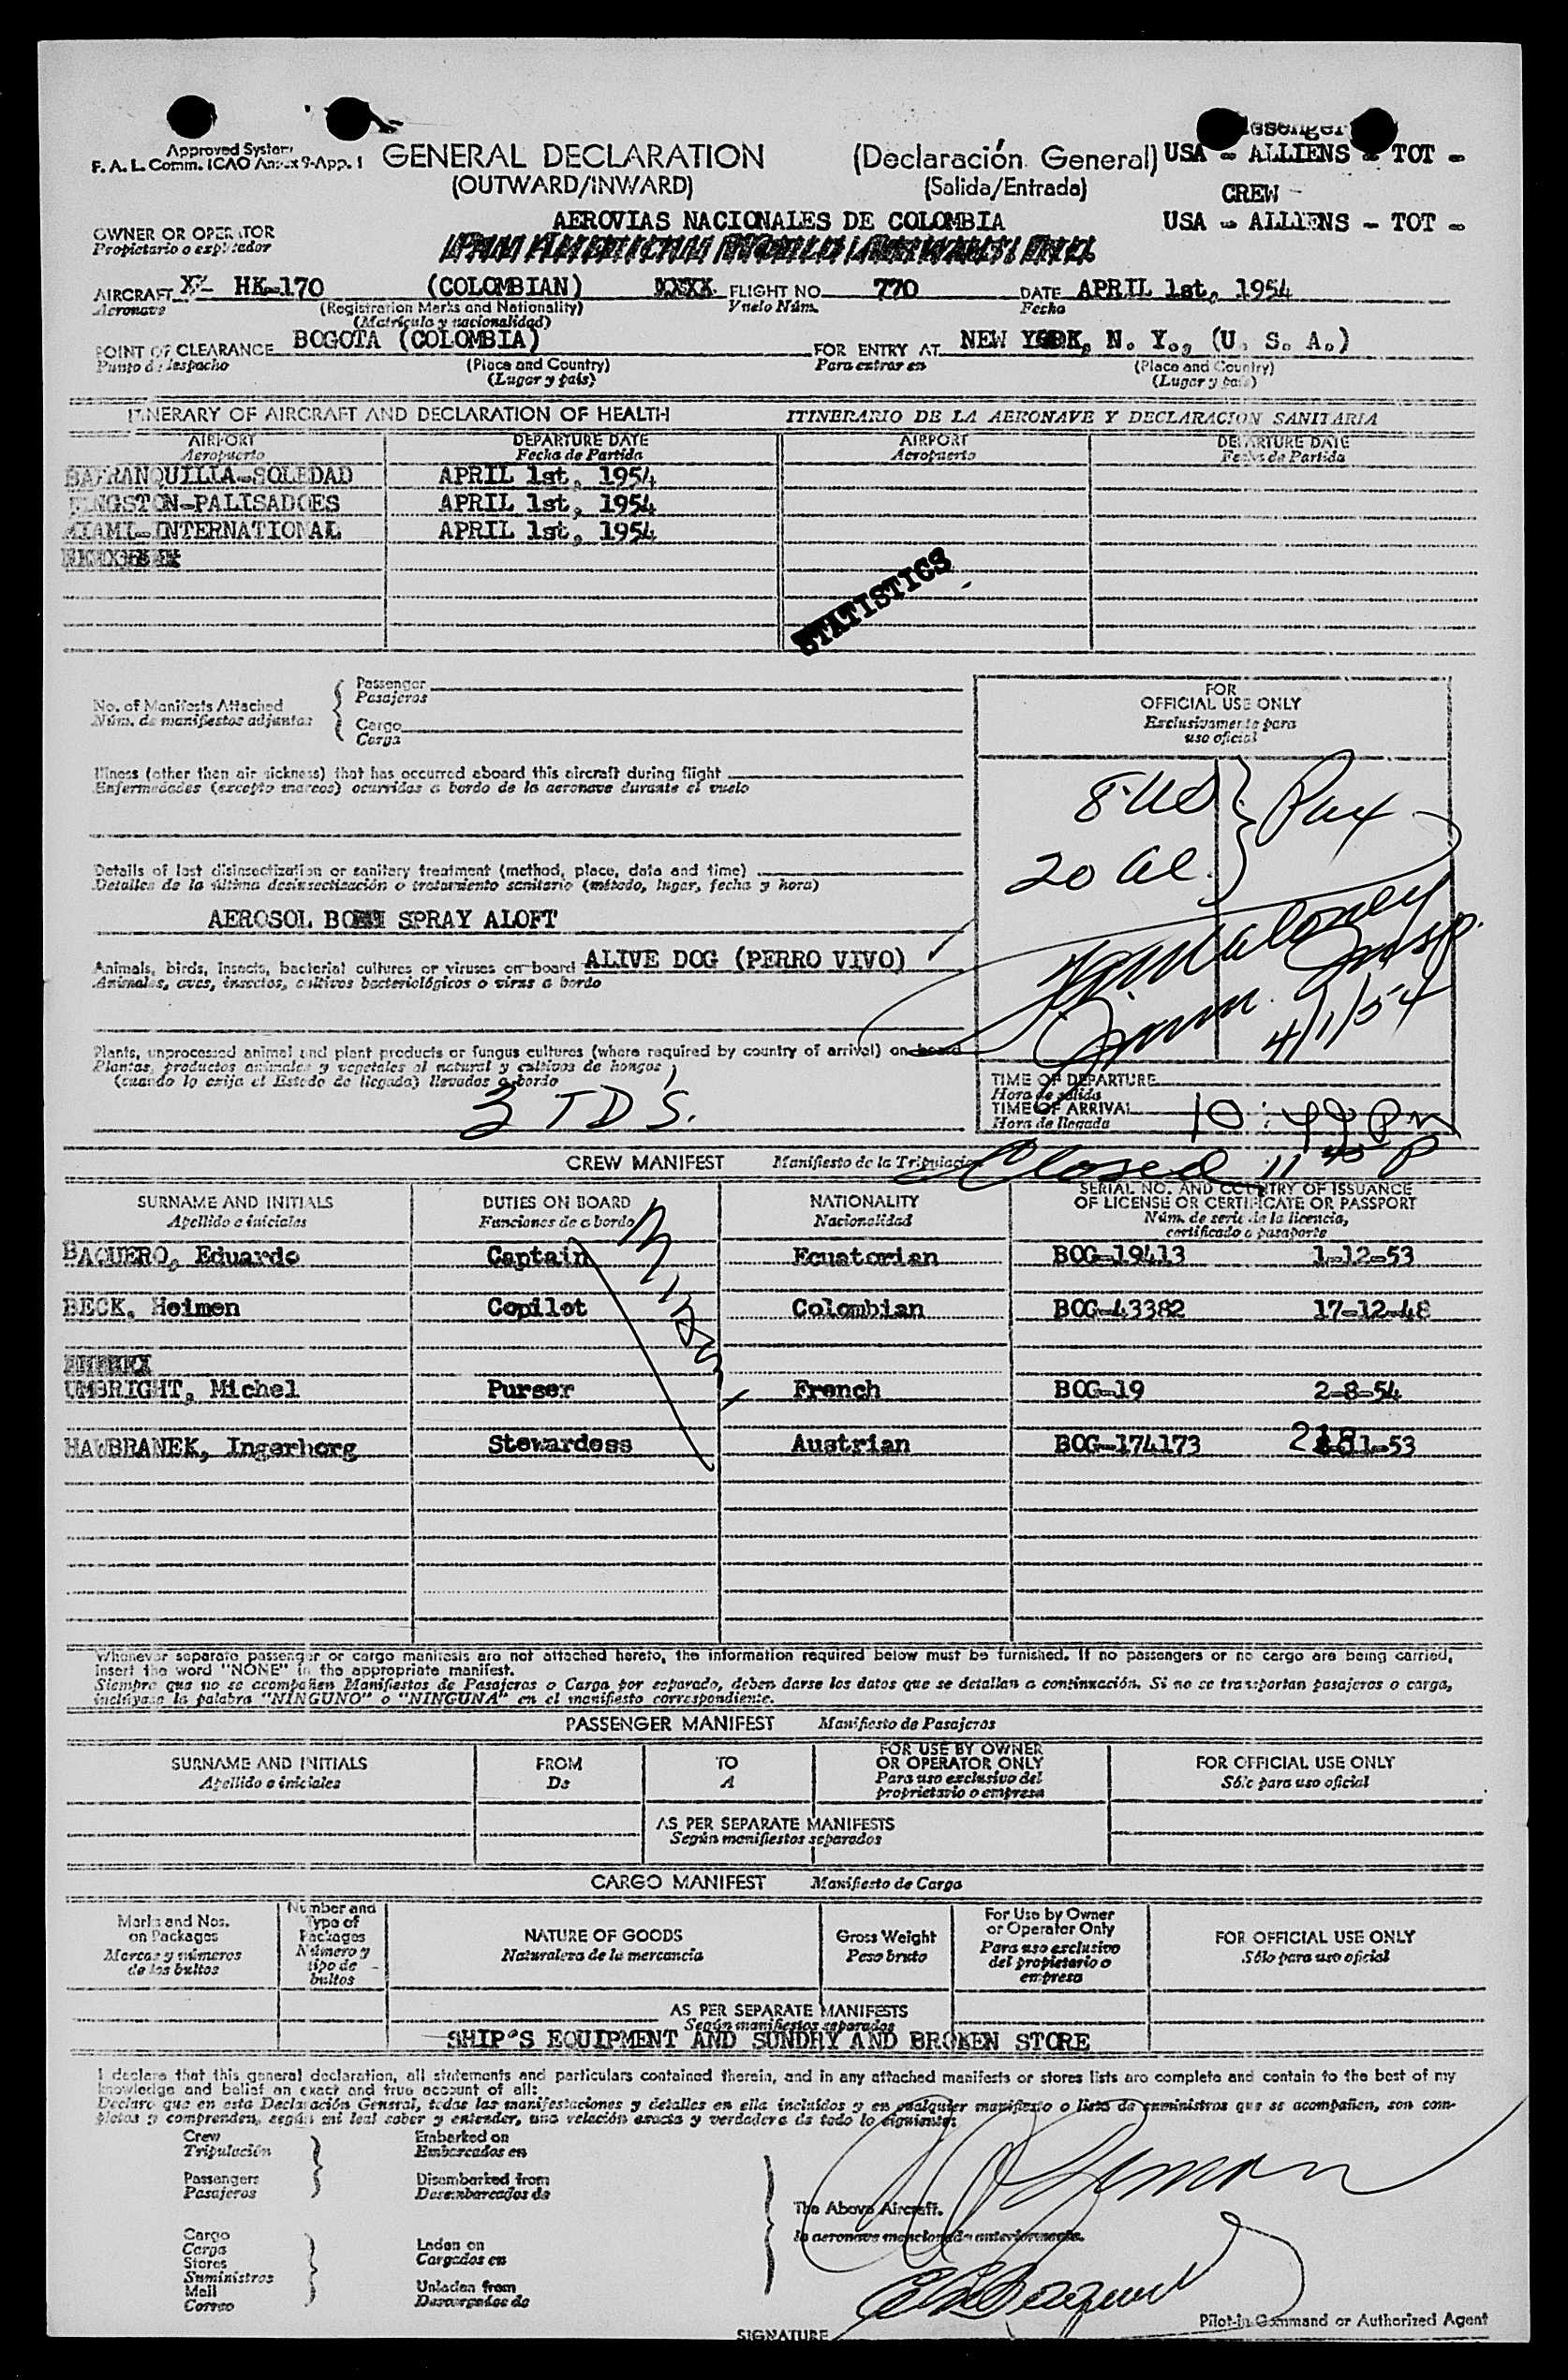 Approved System
F. A. L. Comm. ICAO Annex 9-App. 1
GENERAL DECLARATION
(OUTWARD/INWARD)
(Declaración General)
(Salida/Entrada)
USA - ALLIENS - TOT -
CREW -
USA - ALLIENS - TOT -
OWNER OR OPERATOR
Propietario o explotador
AEROVIAS NACIONALES DE COLOMBIA
AIRCRAFT HK-170 (COLOMBIAN) XXXX FLIGHT NO. 770 DATE APRIL 1st, 1954
Aeronave (Registration Marks and Nationality) Vuelo Núm. Fecha
(Matrícula y nacionalidad)
POINT OF CLEARANCE BOGOTA (COLOMBIA) FOR ENTRY AT NEW YORK, N. Y., (U. S. A.)
Punto de despacho (Place and Country) Para entrar en (Place and Country)
(Lugar y país) (Lugar y país)
ITINERARY OF AIRCRAFT AND DECLARATION OF HEALTH ITINERARIO DE LA AERONAVE Y DECLARACION SANITARIA
AIRPORT DEPARTURE DATE AIRPORT DEPARTURE DATE
Aeropuerto Fecha de Partida Aeropuerto Fecha de Partida
BARRANQUILLA-SOLEDAD APRIL 1st, 1954
KINGSTON-PALISADOES APRIL 1st, 1954
MIAMI-INTERNATIONAL APRIL 1st, 1954
STATISTICS
No. of Manifests Attached
Núm. de manifiestos adjuntos
Passenger
Pasajeros
Cargo
Carga
FOR
OFFICIAL USE ONLY
Exclusivamente para
uso oficial
Illness (other than air sickness) that has occurred aboard this aircraft during flight
Enfermedades (excepto mareos) ocurridas a bordo de la aeronave durante el vuelo
20 al. Pax
Details of last disinsectization or sanitary treatment (method, place, date and time)
Detalles de la última desinsectización o tratamiento sanitario (método, lugar, fecha y hora)
AEROSOL BOMB SPRAY ALOFT
Animals, birds, insects, bacterial cultures or viruses on board ALIVE DOG (PERRO VIVO)
Animales, aves, insectos, cultivos bacteriológicos o virus a bordo
Insp.
4/1/54
Plants, unprocessed animal and plant products or fungus cultures (where required by country of arrival) on board
Plantas, productos animales y vegetales al natural y cultivos de hongos
(cuando lo exija el Estado de llegada) llevados a bordo
3 TD'S.
TIME OF DEPARTURE
Hora de salida
TIME OF ARRIVAL
Hora de llegada
Closed
CREW MANIFEST Manifiesto de la Tripulacion
SURNAME AND INITIALS DUTIES ON BOARD NATIONALITY SERIAL NO. AND COUNTRY OF ISSUANCE
OF LICENSE OR CERTIFICATE OR PASSPORT
Apellido e iniciales Funciones de a bordo Nacionalidad Núm. de serie de la licencia,
certificado o pasaporte
BAQUERO, Eduardo Captain Ecuatorian BOG-19413 1-12-53
BECK, Heimen Copilot Colombian BOG-43382 17-12-48
UMBRIGHT, Michel Purser French BOG-19 2-8-54
HAWBRANEK, Ingerhorg Stewardess Austrian BOG-174173
Whenever separate passenger or cargo manifests are not attached hereto, the information required below must be furnished. If no passengers or no cargo are being carried,
insert the word "NONE" in the appropriate manifest.
Siempre que no se acompañen Manifiestos de Pasajeros o Carga por separado, deben darse los datos que se detallan a continuación. Si no se transportan pasajeros o carga,
inclúyase la palabra "NINGUNO" o "NINGUNA" en el manifiesto correspondiente.
PASSENGER MANIFEST Manifiesto de Pasajeros
SURNAME AND INITIALS FROM TO FOR USE BY OWNER
OR OPERATOR ONLY FOR OFFICIAL USE ONLY
Apellido e iniciales De A Para uso exclusivo del
propietario o empresa Sólo para uso oficial
AS PER SEPARATE MANIFESTS
Según manifiestos separados
CARGO MANIFEST Manifiesto de Carga
Marks and Nos.
on Packages
Marcas y números
de los bultos
Number and
Type of
Packages
Número y
tipo de
bultos
NATURE OF GOODS
Naturaleza de la mercancía
Gross Weight
Peso bruto
For Use by Owner
or Operator Only
Para uso exclusivo
del propietario o
empresa
FOR OFFICIAL USE ONLY
Sólo para uso oficial
AS PER SEPARATE MANIFESTS
Según manifiestos separados
SHIP'S EQUIPMENT AND SUNDRY AND BROKEN STORE
I declare that this general declaration, all statements and particulars contained therein, and in any attached manifests or stores lists are complete and contain to the best of my
knowledge and belief an exact and true account of all:
Declaro que en esta Declaración General, todas las manifestaciones y detalles en ella incluídos y en cualquier manifiesto o lista de suministros que se acompañen, son com-
pletos y comprenden, según mi leal saber y entender, una relación exacta y verdadera de todo lo siguiente:
Crew
Tripulación
Embarked on
Embarcados en
Passengers
Pasajeros
Disembarked from
Desembarcados de
The Above Aircraft.
la aeronave mencionada anteriormente.
Cargo
Carga
Stores
Suministros
Mail
Correo
Laden on
Cargados en
Unladen from
Descargados de
Pilot-in Command or Authorized Agent
SIGNATURE